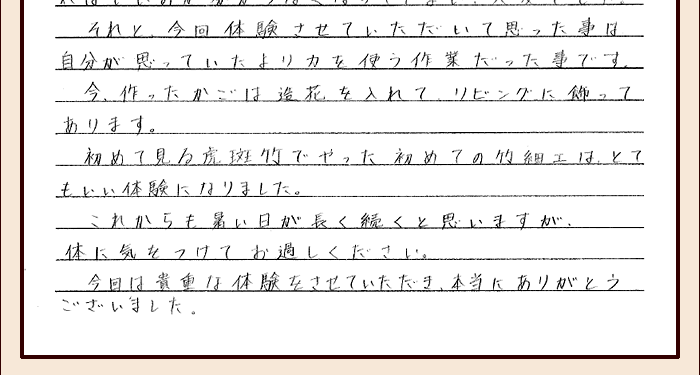 それと、今回体験させていただいて思った事は
自分が思っていたより力を使う作業だった事です。
今、作ったかごは造花を入れて、リビングに飾って
あります。
初めて見る虎斑竹でやった初めての竹細工は、とて
もいい体験になりました。
これからも暑い日が長く続くと思いますが、
体に気をつけてお過しください。
今回は貴重な体験をさせていただき、本当にありがとう
ございました。